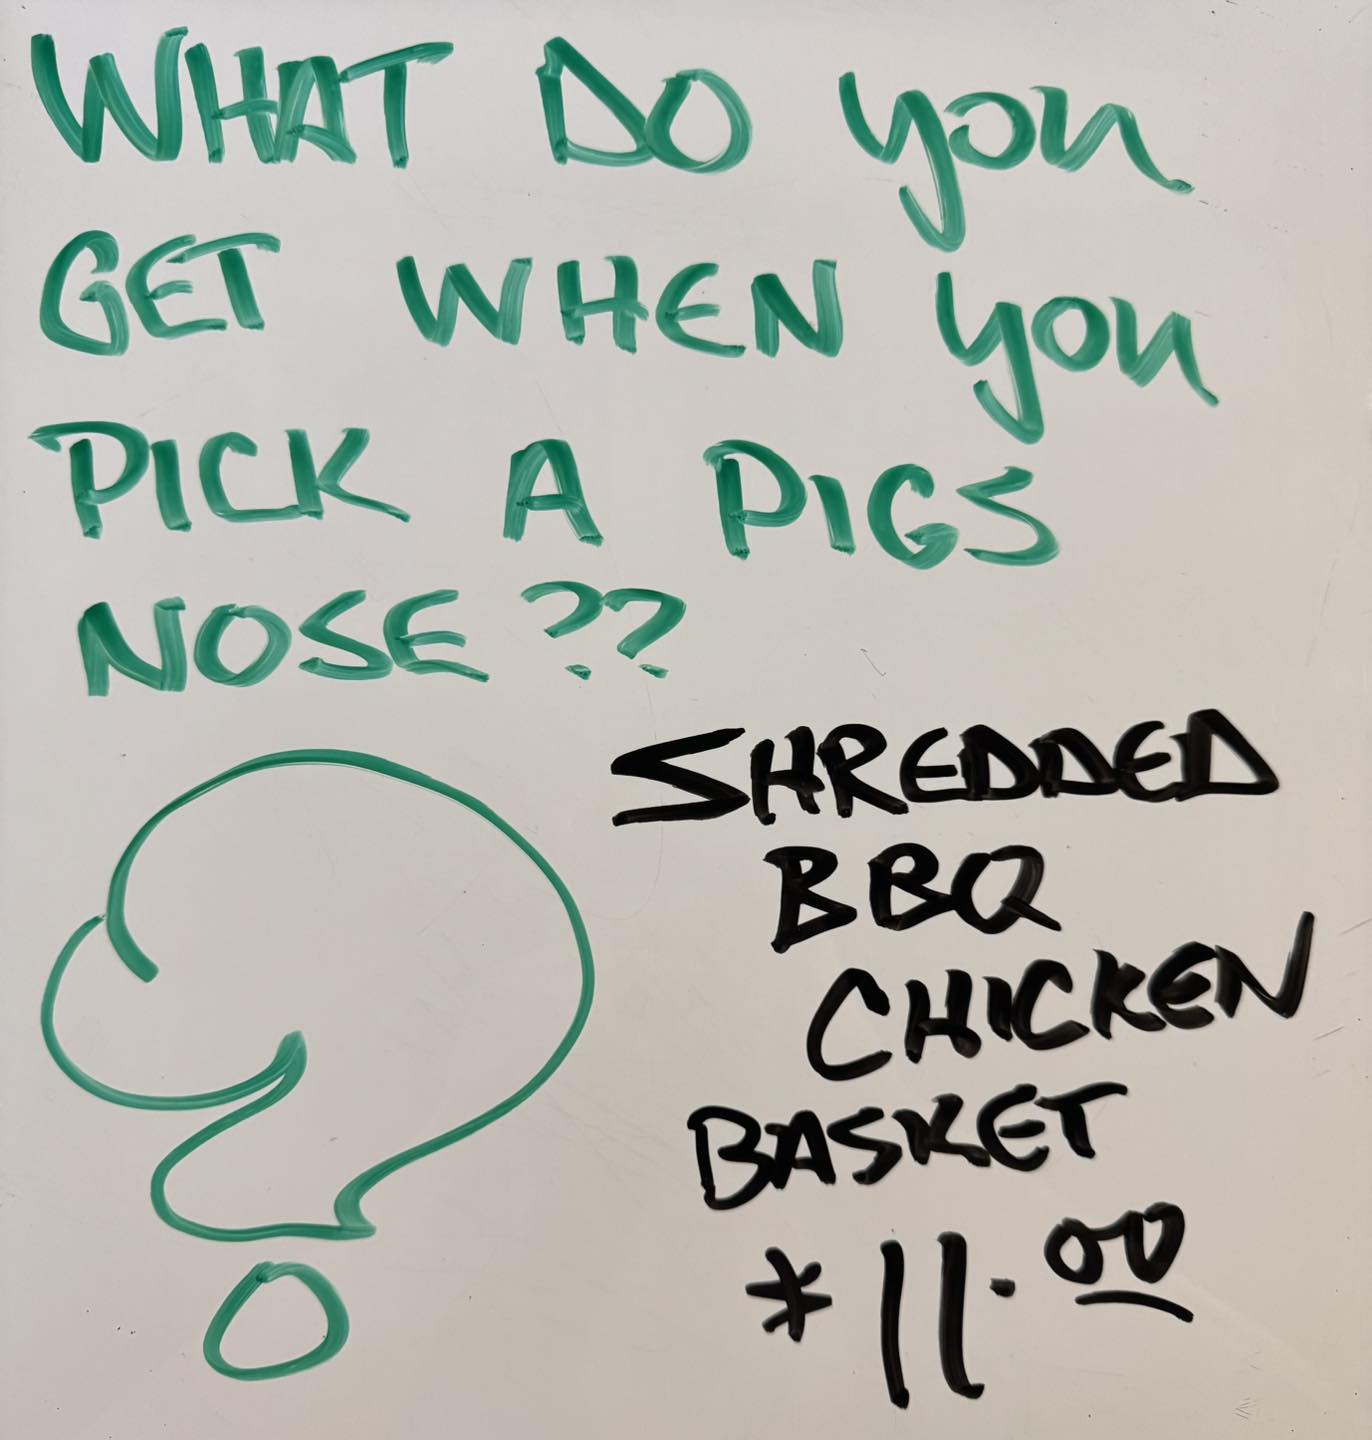 WHAT DO YOU
GET WHEN YOU
PICK A PIGS
NOSE??
SHREDDED
BBQ
CHICKEN
BASKET
*11.00